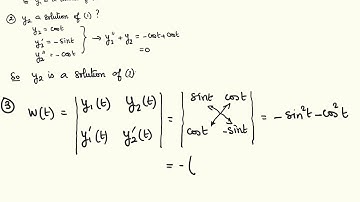 ② y₂ a solution of (1) ?
y₂ = cost
y₂' = -sint
y₂'' = -cost
→ y₂'' + y₂ = -cost + cost
= 0
So y₂ is a solution of (1)
③ W(t) = | y₁(t) y₂(t) | = | sint cost | = - sin²t - cos²t
| y₁'(t) y₂'(t) | | cost -sint |
= - (